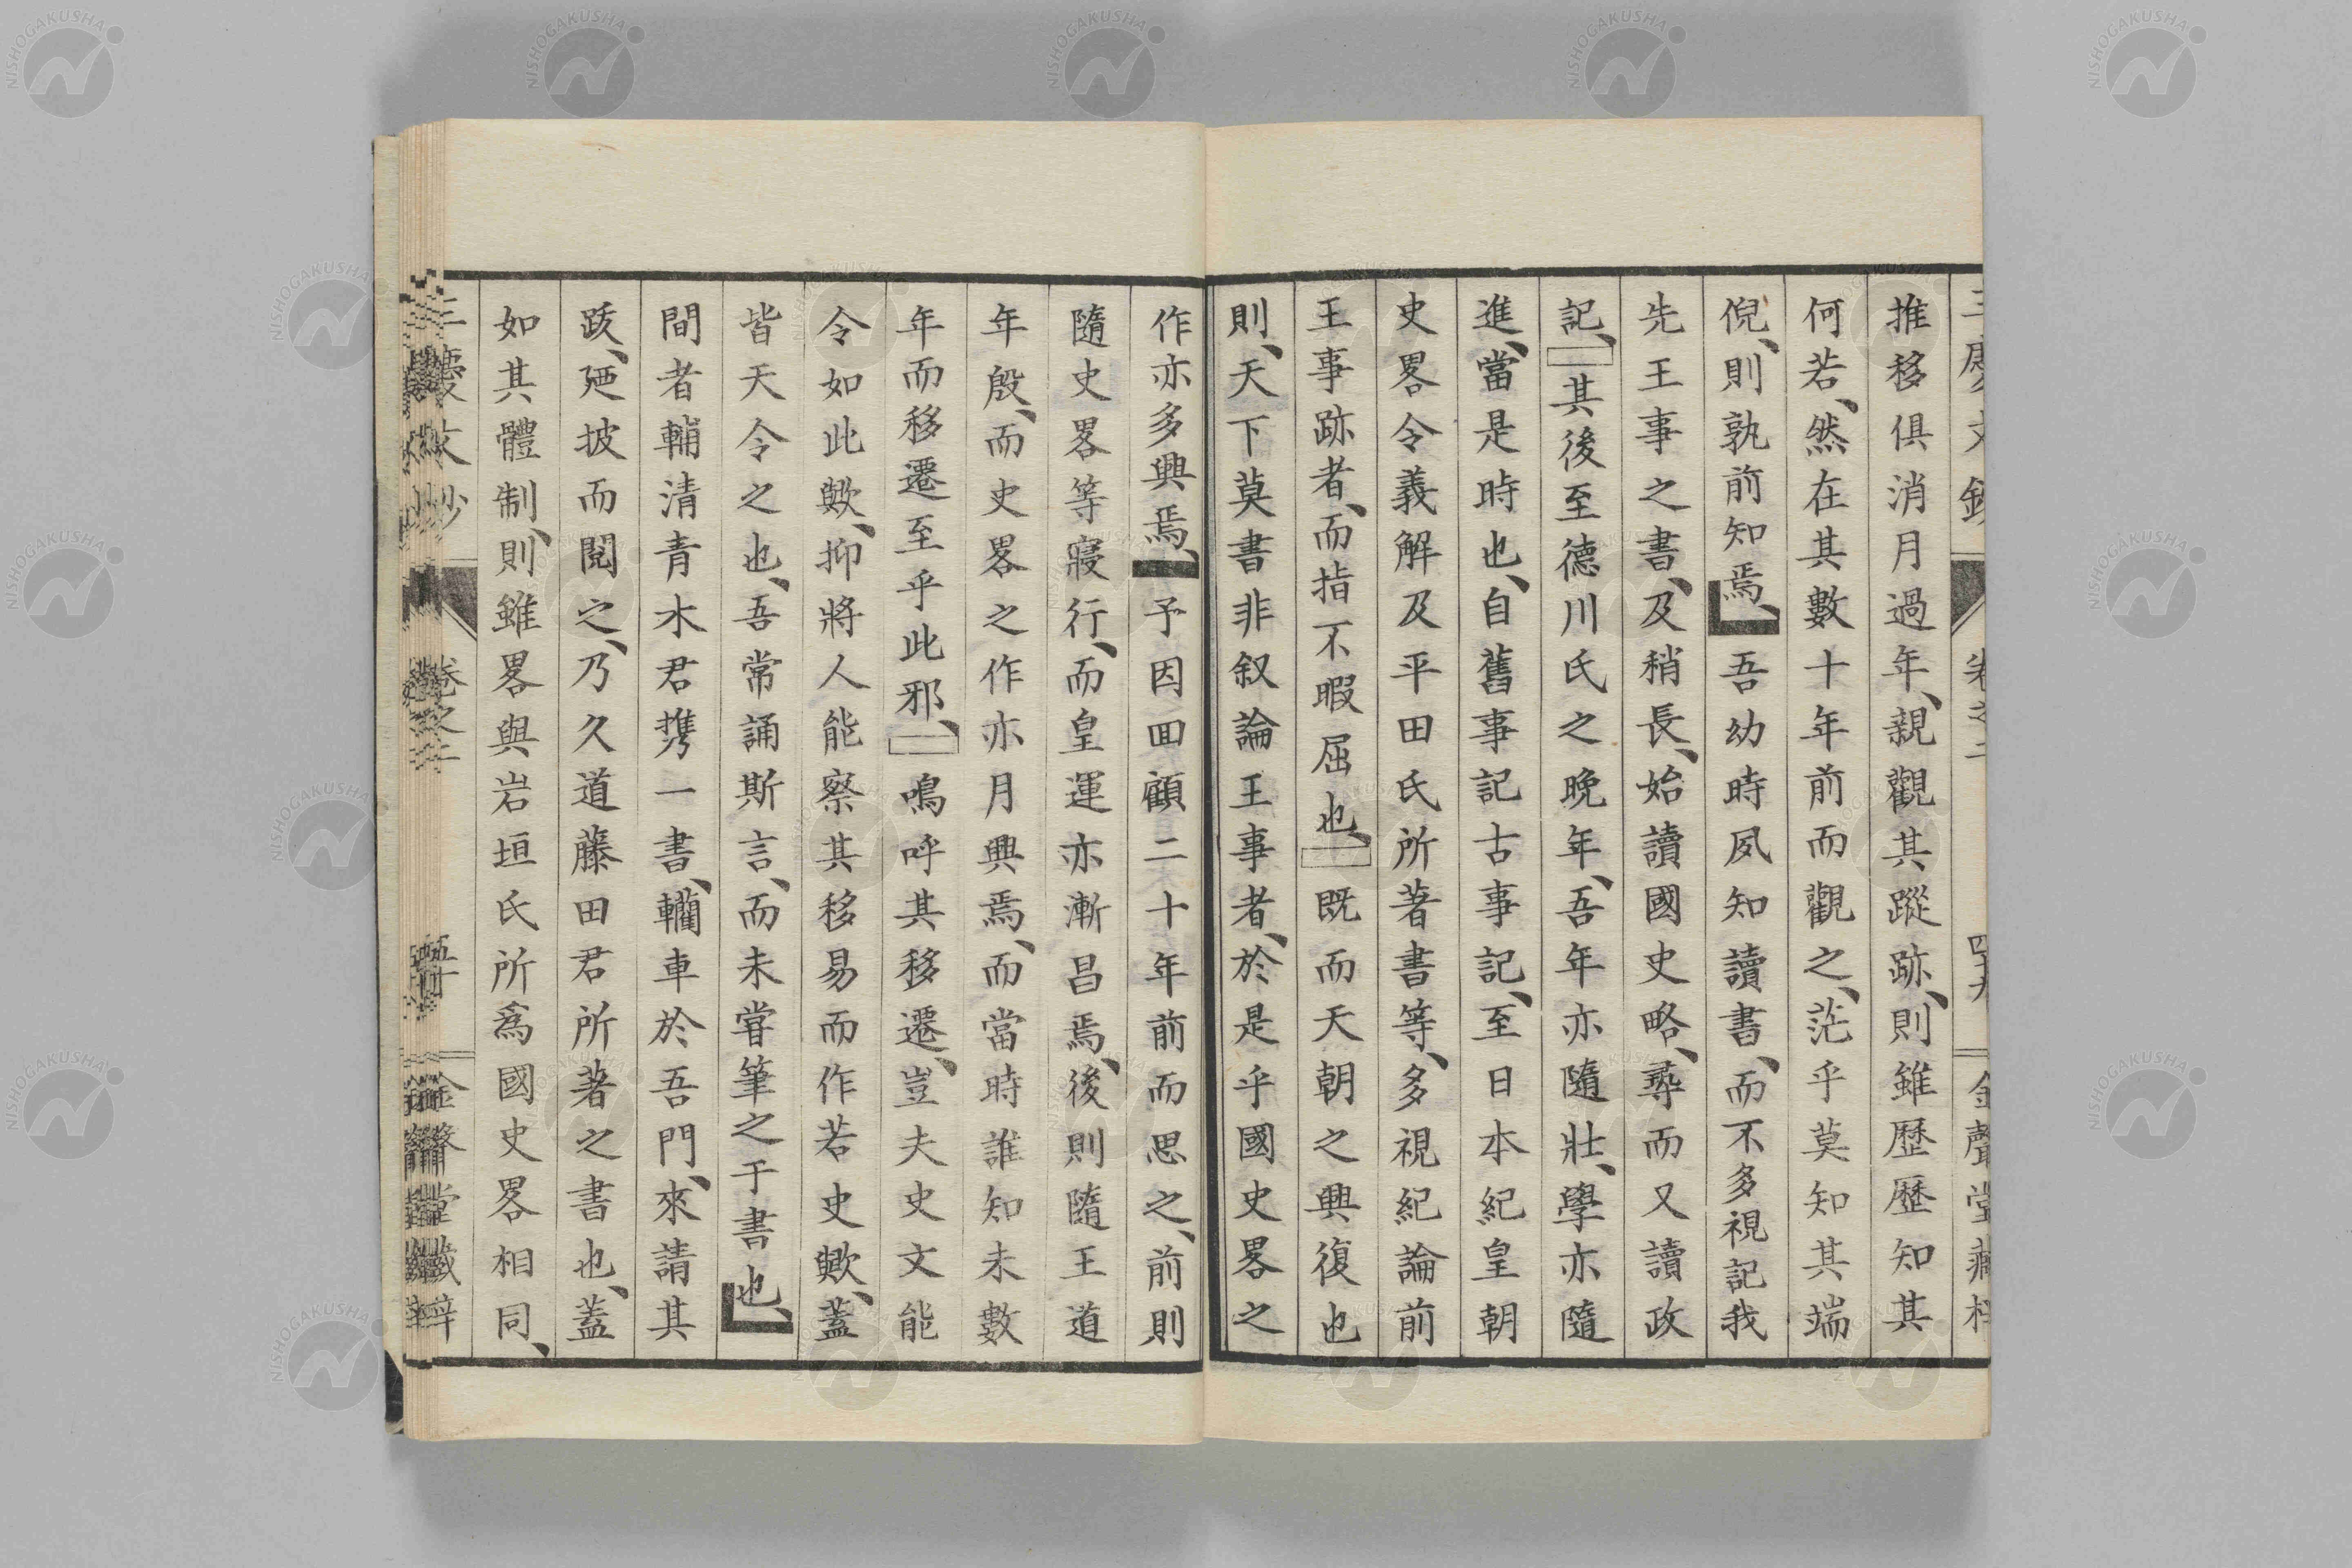 推移俱消月過年、親觀其蹤跡、則雖歷歷知其
何若、然在其數十年前而觀之、茫乎莫知其端
倪、則孰前知焉、吾幼時夙知讀書、而不多視記我
先王事之書、及稍長、始讀國史略、尋而又讀政
記、其後至德川氏之晚年、吾年亦隨壯、學亦隨
進、當是時也、自舊事記古事記、至日本紀皇朝
史畧令義解及平田氏所著書等、多視紀論前
王事跡者、而指不暇屈也、既而天朝之興復也
則、天下莫書非叙論王事者、於是乎國史畧之
作亦多興焉、予因回顧二十年前而思之、前則
隨史畧等寢行、而皇運亦漸昌焉、後則隨王道
年殷、而史畧之作亦月興焉、而當時誰知未數
年而移遷至乎此邪、鳴呼其移遷、豈夫史文能
令如此歟、抑將人能察其移易而作若史歟、蓋
皆天令之也、吾常誦斯言、而未嘗筆之于書也、
間者輔清青木君携一書、轥車於吾門、來請其
跋、廼披而閱之、乃久道藤田君所著之書也、蓋
如其體制、則雖畧與岩垣氏所爲國史畧相同、
卷之二
金聲堂藏梓
NISHOGAKUSHA